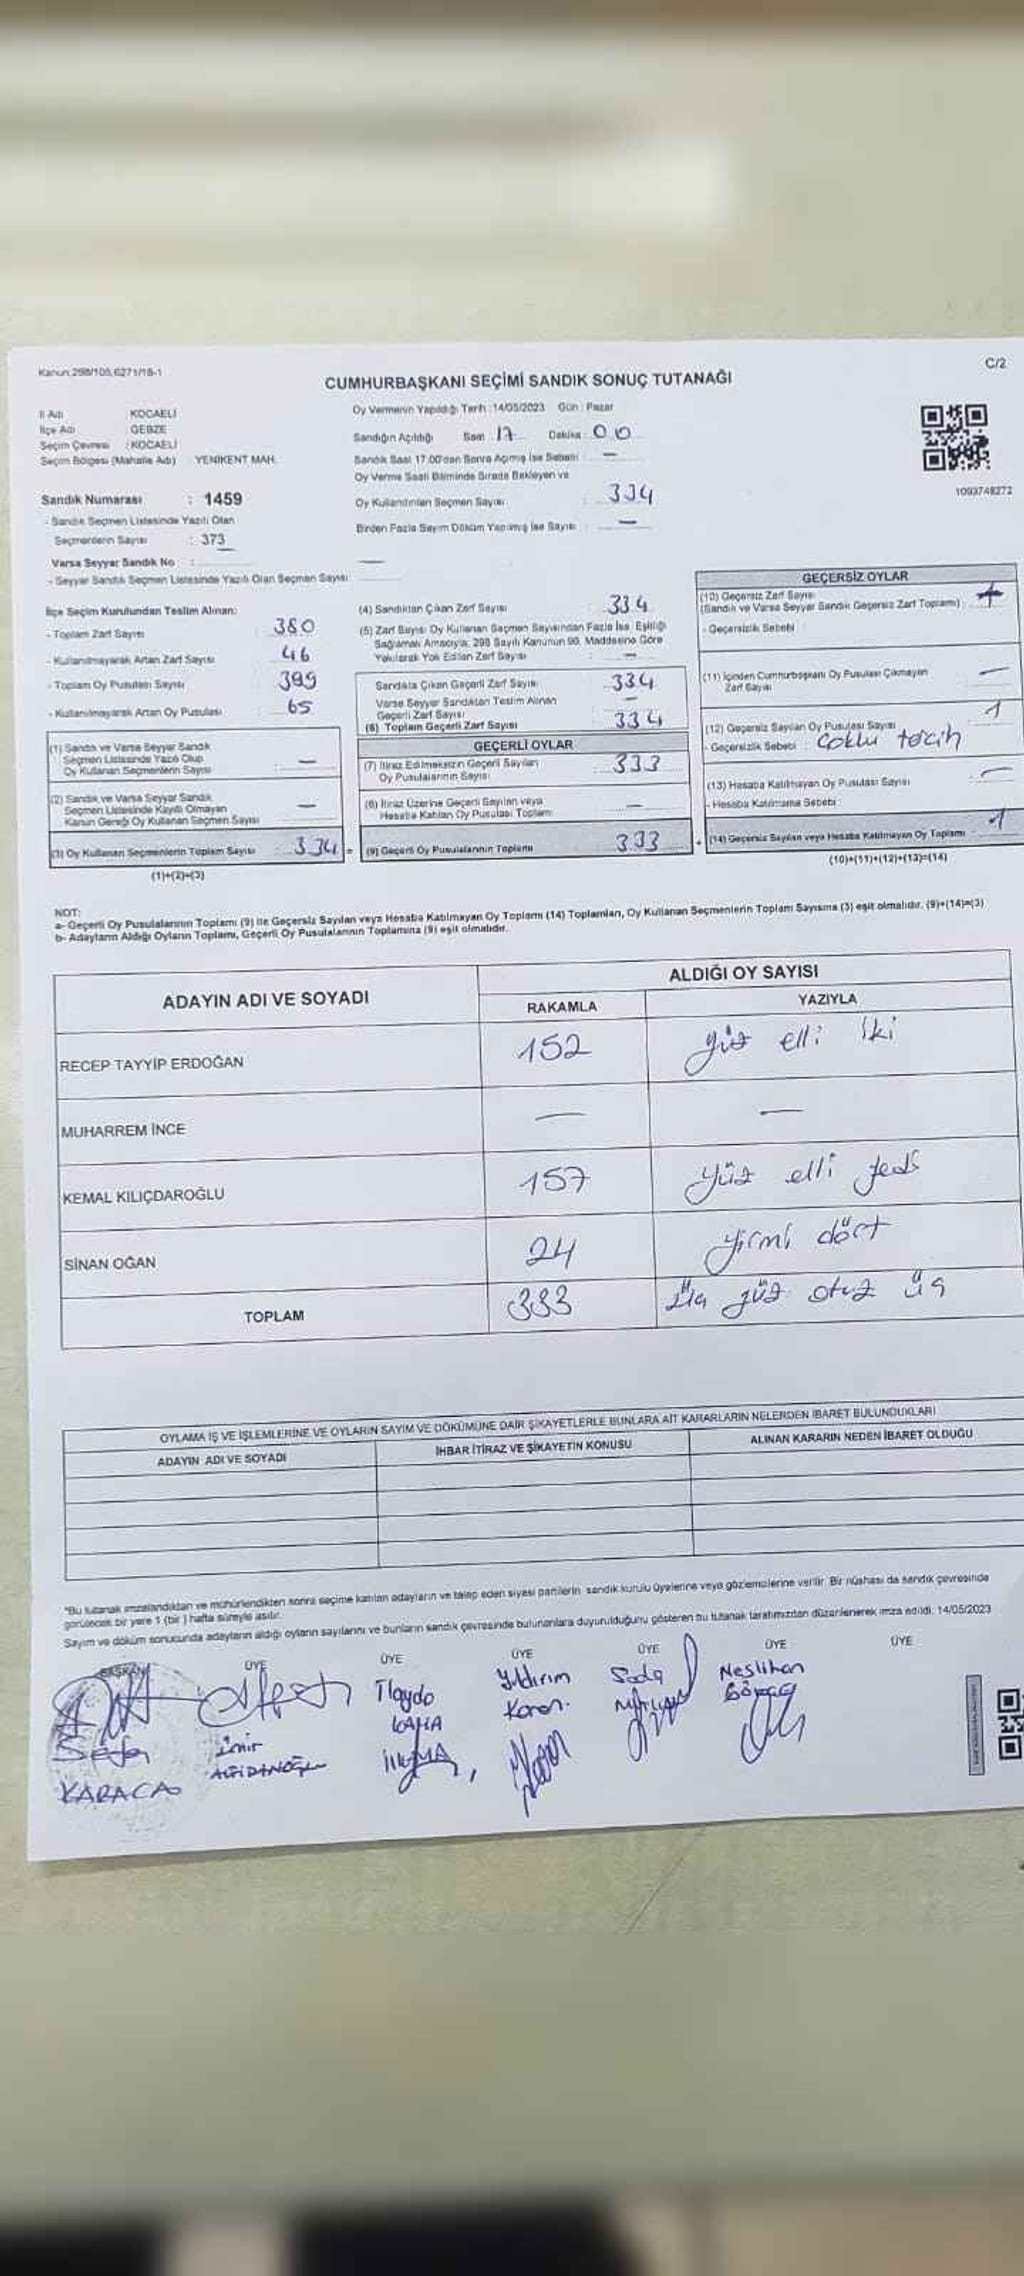 Kanun:298/105,6271/18-1
C/2
CUMHURBAŞKANI SEÇİMİ SANDIK SONUÇ TUTANAĞI
İl Adı : KOCAELİ
İlçe Adı : GEBZE
Seçim Çevresi : KOCAELİ
Seçim Bölgesi (Mahalle Adı) : YENİKENT MAH.
Sandık Numarası : 1459
- Sandık Seçmen Listesinde Yazılı Olan
Seçmenlerin Sayısı : 373
Varsa Seyyar Sandık No : —
- Seyyar Sandık Seçmen Listesinde Yazılı Olan Seçmen Sayısı
Oy Vermenin Yapıldığı Tarih : 14/05/2023 Gün : Pazar
Sandığın Açıldığı Saat : 17 Dakika : 00
Sandık Saat 17:00'dan Sonra Açılmış İse Sebebi : —
Oy Verme Saati Bitiminde Sırada Bekleyen ve
Oy Kullandırılan Seçmen Sayısı : 334
Birden Fazla Sayım Döküm Yapılmış İse Sayısı : —
1093748272
İlçe Seçim Kurulundan Teslim Alınan:
- Toplam Zarf Sayısı : 380
- Kullanılmayarak Artan Zarf Sayısı : 46
- Toplam Oy Pusulası Sayısı : 399
- Kullanılmayarak Artan Oy Pusulası : 65
(1) Sandık ve Varsa Seyyar Sandık
Seçmen Listesinde Yazılı Olup
Oy Kullanan Seçmenlerin Sayısı : —
(2) Sandık ve Varsa Seyyar Sandık
Seçmen Listesinde Kayıtlı Olmayan
Kanun Gereği Oy Kullanan Seçmen Sayısı : —
(3) Oy Kullanan Seçmenlerin Toplam Sayısı : 334 =
(1)+(2)=(3)
(4) Sandıktan Çıkan Zarf Sayısı : 334
(5) Zarf Sayısı Oy Kullanan Seçmen Sayısından Fazla İse, Eşitliği
Sağlamak Amacıyla, 298 Sayılı Kanunun 98. Maddesine Göre
Yakılarak Yok Edilen Zarf Sayısı : —
Sandıkta Çıkan Geçerli Zarf Sayısı : 334
Varsa Seyyar Sandıktan Teslim Alınan
Geçerli Zarf Sayısı : —
(6) Toplam Geçerli Zarf Sayısı : 334
GEÇERLİ OYLAR
(7) İtiraz Edilmeksizin Geçerli Sayılan
Oy Pusulalarının Sayısı : 333
(8) İtiraz Üzerine Geçerli Sayılan veya
Hesaba Katılan Oy Pusulası Toplamı : —
(9) Geçerli Oy Pusulalarının Toplamı : 333 +
GEÇERSİZ OYLAR
(10) Geçersiz Zarf Sayısı
(Sandık ve Varsa Seyyar Sandık Geçersiz Zarf Toplamı) :
- Geçersizlik Sebebi :
(11) İçinden Cumhurbaşkanı Oy Pusulası Çıkmayan
Zarf Sayısı : —
(12) Geçersiz Sayılan Oy Pusulası Sayısı : 1
- Geçersizlik Sebebi : Çoklu tercih
(13) Hesaba Katılmayan Oy Pusulası Sayısı : —
- Hesaba Katılmama Sebebi :
(14) Geçersiz Sayılan veya Hesaba Katılmayan Oy Toplamı : 1
(10)+(11)+(12)+(13)=(14)
NOT:
a- Geçerli Oy Pusulalarının Toplamı (9) ile Geçersiz Sayılan veya Hesaba Katılmayan Oy Toplamı (14) Toplamları, Oy Kullanan Seçmenlerin Toplam Sayısına (3) eşit olmalıdır. (9)+(14)=(3)
b- Adayların Aldığı Oyların Toplamı, Geçerli Oy Pusulalarının Toplamına (9) eşit olmalıdır.
ADAYIN ADI VE SOYADI
ALDIĞI OY SAYISI
RAKAMLA YAZIYLA
RECEP TAYYİP ERDOĞAN 152 yüz elli iki
MUHARREM İNCE — —
KEMAL KILIÇDAROĞLU 157 yüz elli yedi
SİNAN OĞAN 24 yirmi dört
TOPLAM 333 üç yüz otuz üç
OYLAMA İŞ VE İŞLEMLERİNE VE OYLARIN SAYIM VE DÖKÜMÜNE DAİR ŞİKAYETLERLE BUNLARA AİT KARARLARIN NELERDEN İBARET BULUNDUKLARI
ADAYIN ADI VE SOYADI İHBAR İTİRAZ VE ŞİKAYETİN KONUSU ALINAN KARARIN NEDEN İBARET OLDUĞU
*Bu tutanak imzalandıktan ve mühürlendikten sonra seçime katılan adayların ve talep eden siyasi partilerin, sandık kurulu üyelerine veya gözlemcilerine verilir. Bir nüshası da sandık çevresinde
görülecek bir yere 1 (bir) hafta süreyle asılır.
Sayım ve döküm sonucunda adayların aldığı oyların sayılarını ve bunların sandık çevresinde bulunanlara duyurulduğunu gösteren bu tutanak tarafımızdan düzenlenerek imza edildi. 14/05/2023
BAŞKAN ÜYE ÜYE ÜYE ÜYE ÜYE ÜYE
Sefer
KARACA
İlayda
KAYA
Yıldırım
Koran
Seda
Neslihan